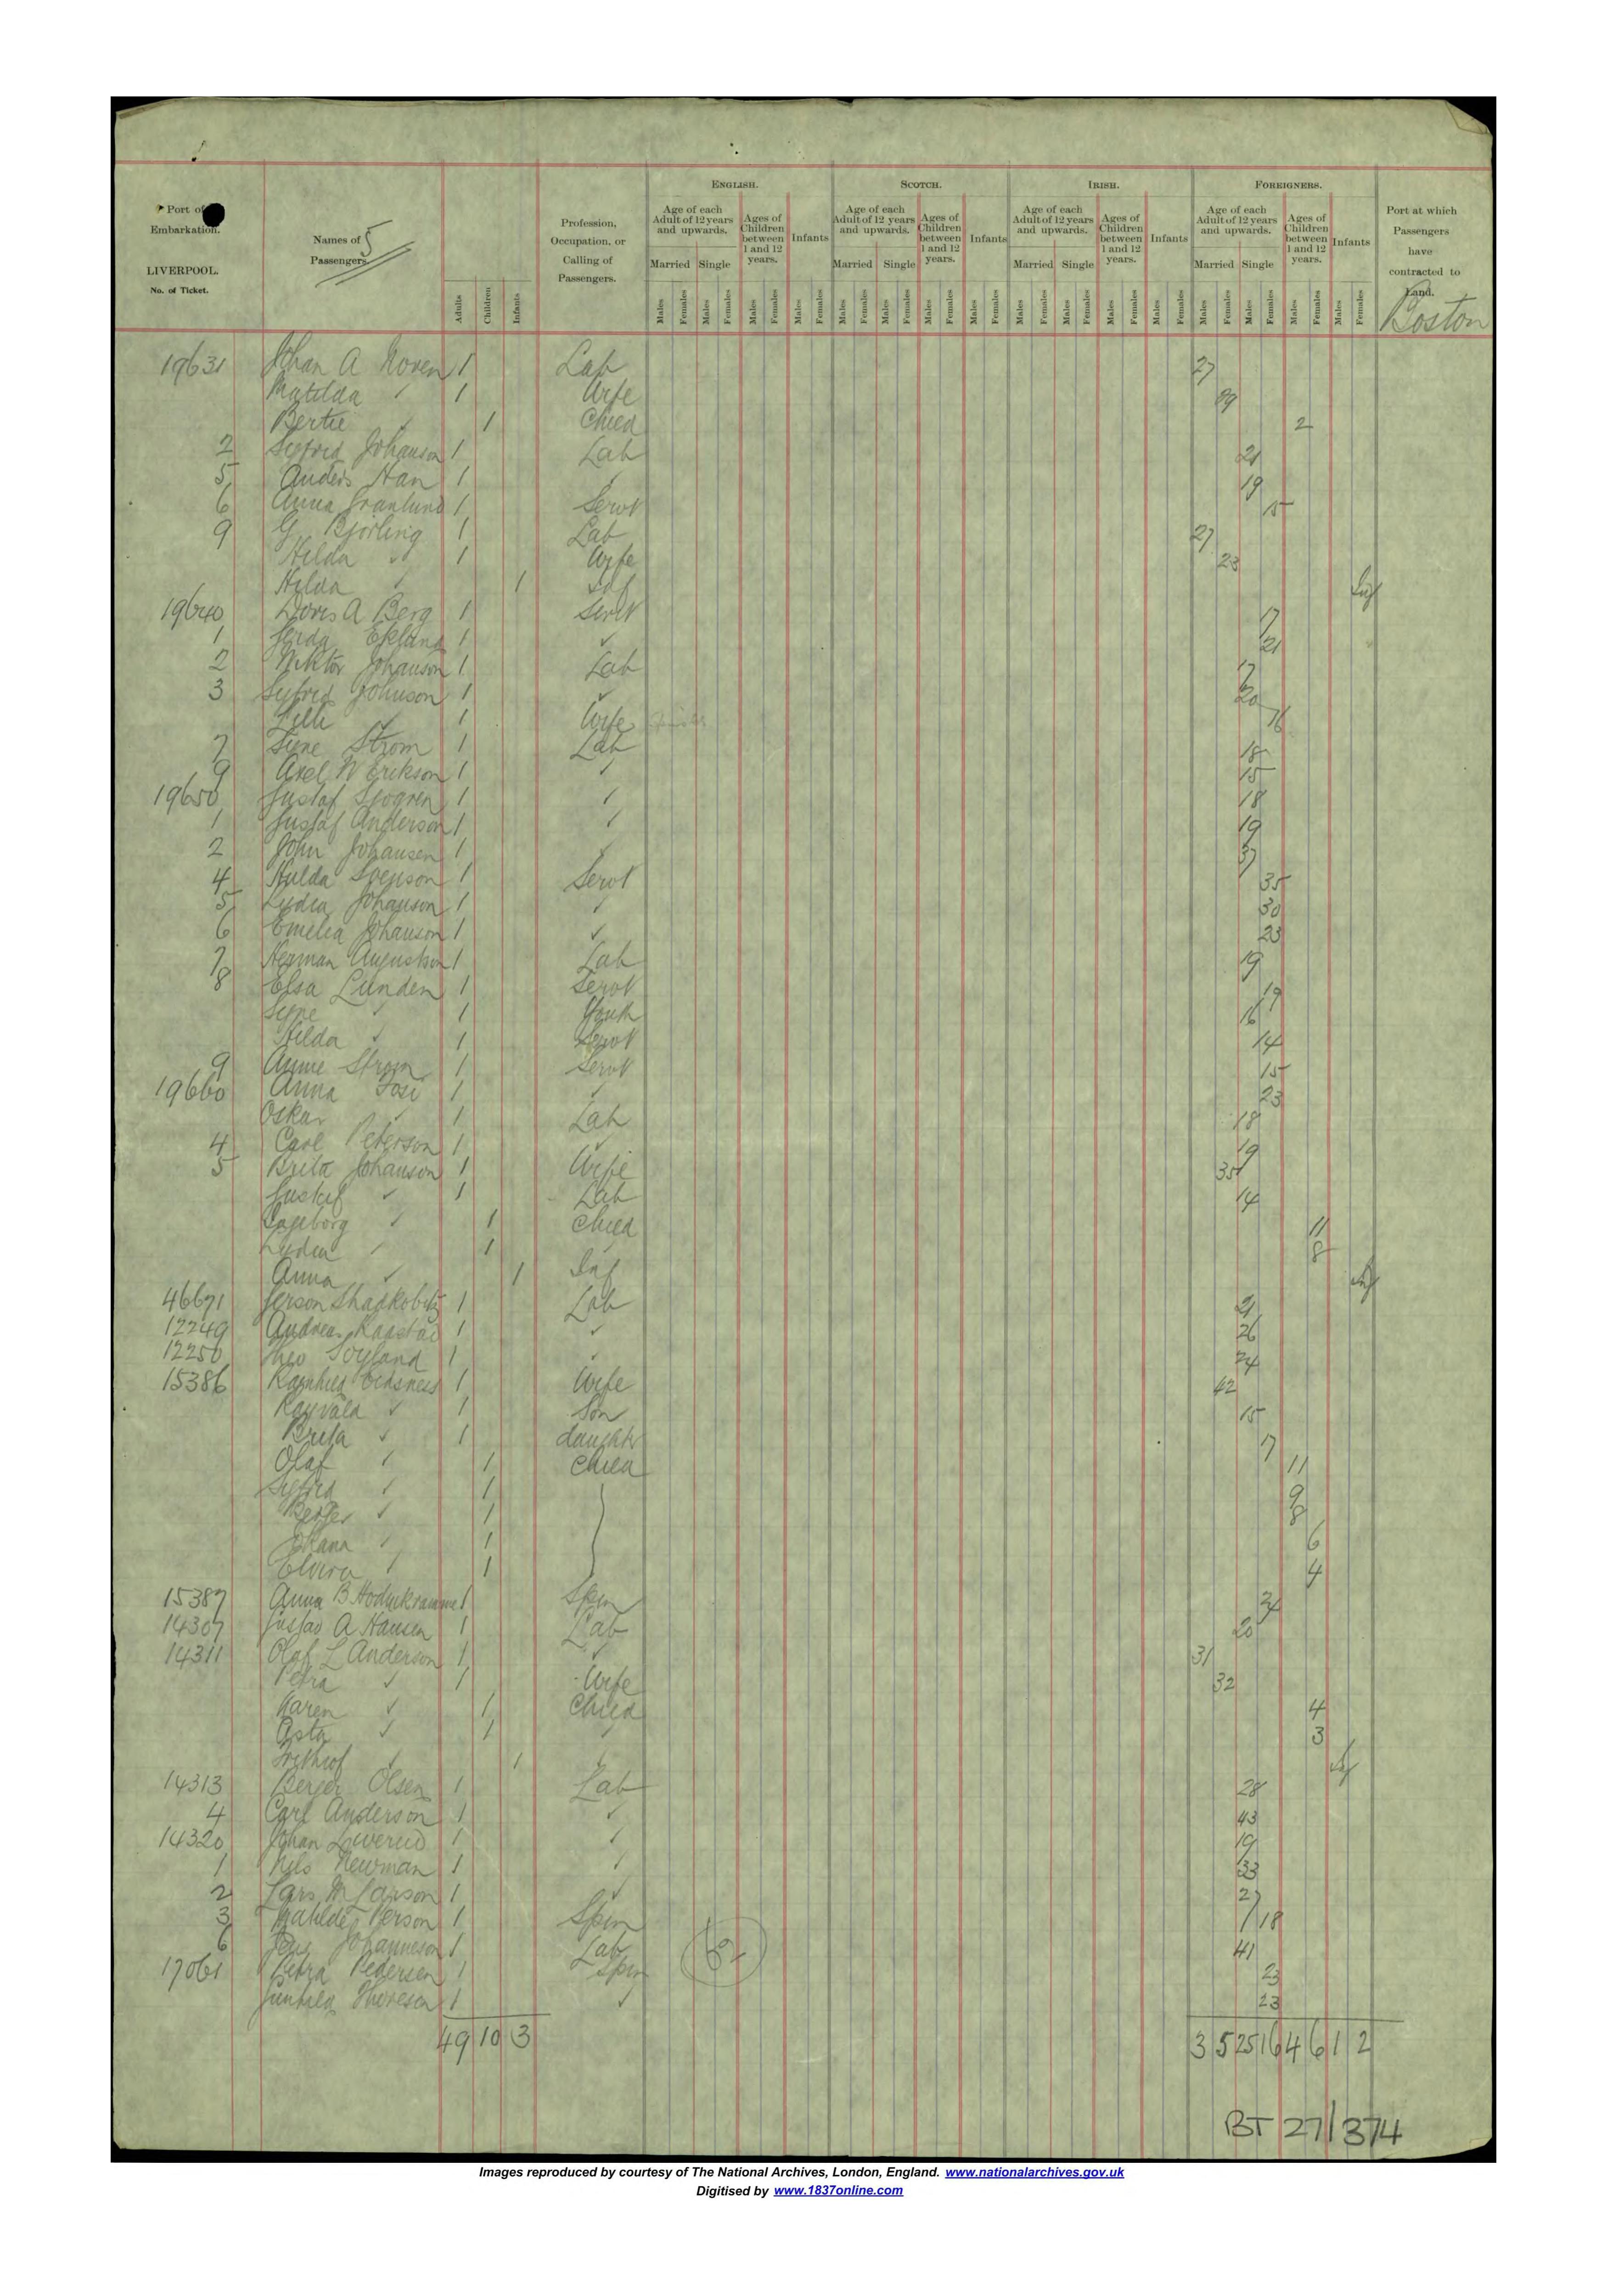 Port of
Embarkation.
LIVERPOOL.
No. of Ticket.
Names of
Passengers.
5
Adults
Children
Infants
Profession,
Occupation, or
Calling of
Passengers.
ENGLISH.
Age of each
Adult of 12 years
and upwards.
Married Single
Males Females Males Females
Ages of
Children
between
1 and 12
years.
Males Females
Infants
Males Females
SCOTCH.
Age of each
Adult of 12 years
and upwards.
Married Single
Males Females Males Females
Ages of
Children
between
1 and 12
years.
Males Females
Infants
Males Females
IRISH.
Age of each
Adult of 12 years
and upwards.
Married Single
Males Females Males Females
Ages of
Children
between
1 and 12
years.
Males Females
Infants
Males Females
FOREIGNERS.
Age of each
Adult of 12 years
and upwards.
Married Single
Males Females Males Females
Ages of
Children
between
1 and 12
years.
Males Females
Infants
Males Females
Port at which
Passengers
have
contracted to
Land.
Boston
19631 Johan A Noren 1 Lab 27
Matilda ✓ 1 Wife
Bertie ✓ 1 Child 2
2 Sigfrid Johanson 1 Lab 21
5 Anders Han 1 ✓ 19
6 Anna Granlund 1 Servt 15
9 G Bjorling 1 Lab 27
Hilda ✓ 1 Wife 23
Hilda ✓ 1 Inf Inf
19640 Doris A Berg 1 Servt 17
1 Gerda Eklund 1 ✓ 21
2 Viktor Johanson 1 Lab 17
3 Sigfrid Johnson 1 ✓ 20
1 Wife
7 Strom 1 Lab 18
9 Axel W Erikson 1 ✓ 15
19650 Gustaf Sjogren 1 ✓ 18
1 Gustaf Anderson 1 ✓ 19
2 John Johansen 1 ✓ 37
4 Hulda Svenson 1 Servt 35
5 Lydia Johanson 1 ✓ 30
6 Emelia Johanson 1 ✓ 23
7 Herman Augustson 1 Lab 19
8 Elsa Lunden 1 Servt 19
1 Youth 16
Hilda ✓ 1 Servt 14
9 Annie Strom 1 Servt 15
19660 Anna 1 ✓ 23
Oskar ✓ 1 Lab 18
4 Carl Peterson 1 ✓ 19
5 Brita Johanson 1 Wife 35
Gustaf ✓ 1 Lab 14
Ingeborg ✓ 1 Child 11
Lydia ✓ 1 ✓ 8
Anna ✓ 1 Inf Inf
46671 Gerson 1 Lab 21
12249 Andreas 1 ✓ 26
12250 Theo Soyland 1 ✓ 24
15386 1 Wife 42
✓ 1 Son 15
Brita ✓ 1 daughtr 17
Olaf ✓ 1 Child 11
Sigfrid ✓ 1 9
Berger ✓ 1 8
Johana ✓ 1 6
Elvira ✓ 1 4
15387 Anna B 1 Spin
14307 Gustav A Hansen 1 Lab 20
14311 Olaf L Anderson 1 ✓ 31
Petra ✓ 1 Wife 32
Karen ✓ 1 Child 4
Asta ✓ 1 ✓ 3
Frithiof ✓ 1 ✓ Inf
14313 Berger Olsen 1 Lab 28
4 Carl Anderson 1 ✓ 43
14320 Johan 1 ✓ 19
1 Nils Newman 1 ✓ 33
2 Lars M Larson 1 ✓ 27
3 Matilde Person 1 Spin 18
6 Johanneson 1 Lab 41
17061 Petra Pedersen 1 Spin 23
Gunhild Thoreson 1 ✓ 23
62
49 10 3 3 5 25 16 4 6 1 2
BT 27/374
Images reproduced by courtesy of The National Archives, London, England. www.nationalarchives.gov.uk
Digitised by www.1837online.com